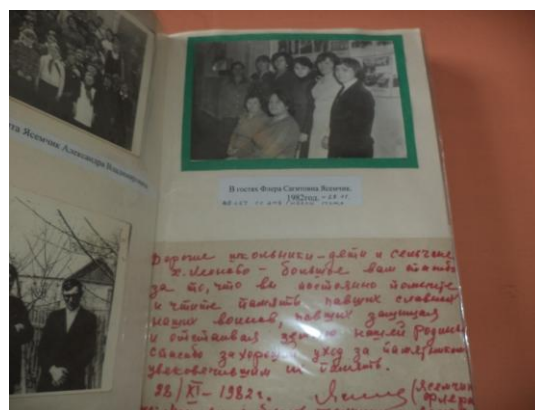 та Ясемчик Александра Владимировича
В гостях Флера Сагитовна Ясемчик.
1982год.
Дорогие школьники – дети и сельчане
х. Леоново – большое вам спасибо
за то, что вы постоянно помните
и чтите память павших славных
наших воинов, павших защищая
и отстаивая землю нашей Родины
спасибо за хороший уход за памятником
увековечившим их память.
28/XI – 1982 г.